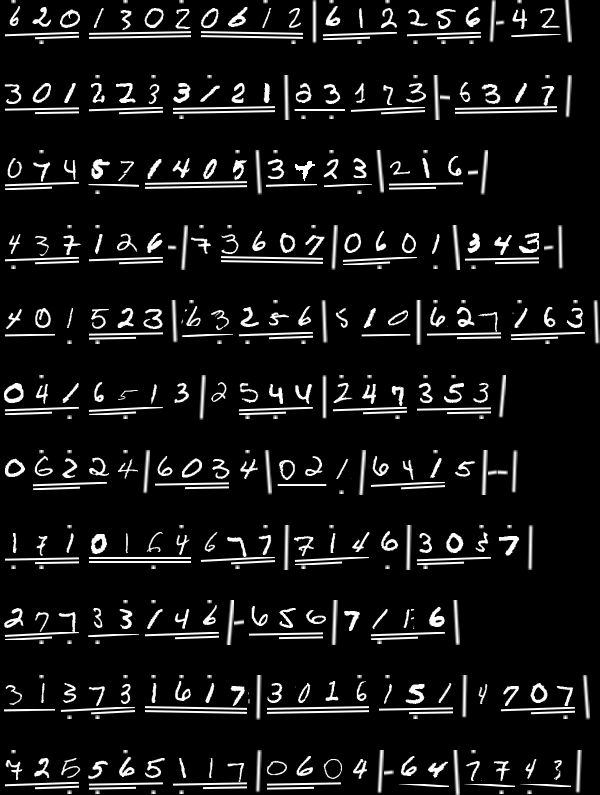 620 1302 0612|612 256|-42|
301 223 3121|23 1713|-6317|
074 57 1405|34 23|216-|
437 126-|73607|060 1|343-|
401 523|63 256|510|627 163|
041 6513|2544|247 353|
06224|6034|021|6415|--|
171 0164 677|7146|3037|
277 33 146|-656|7116|
31373 1617|3016 151|4707|
725 565 117|0604|-64|7743|